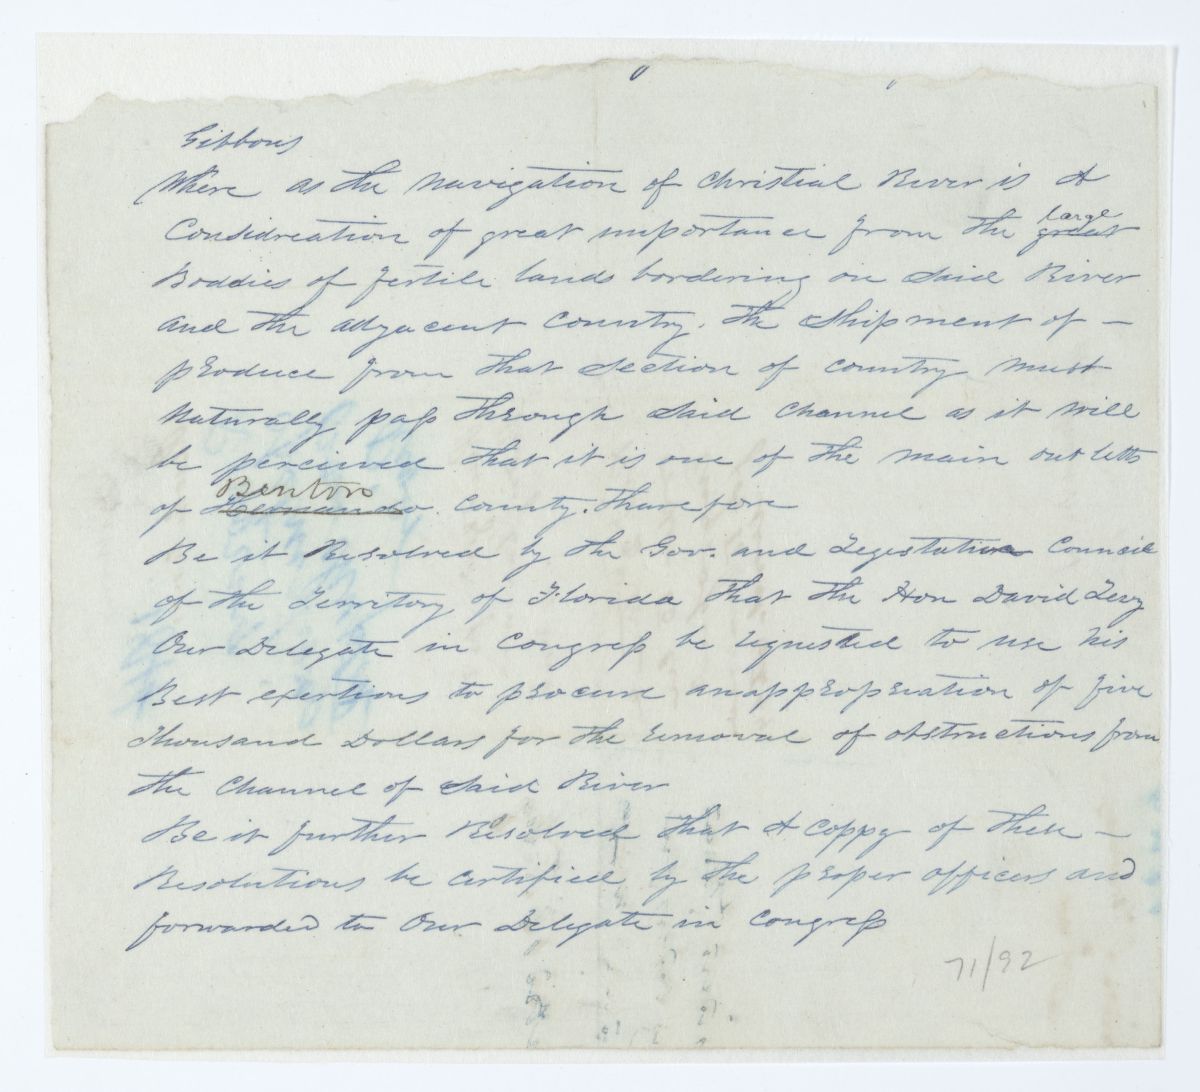 Gibbons
Where as the navigation of Christial River is A
Considreation of great importance from the large great
Boddies of fertile lands bordering on Said River
and the adjacent Country. the Shipment of —
produce from that Section of country must
Naturally pass through Said Channel as it will
be perceived that it is one of the main out letts
of Benton Hernando County. Tharefore
Be it Resolved by the Gov. and Legistative Council
of the Territory of Florida that the Hon David Levy
Our Delegate in Congress be requested to use his
Best exertions to procure an appropreation of five
thousand Dollars for the removal of obstructions from
the Channel of Said River
Be it further Resolved that A Coppy of these —
Resolutions be certified by the proper officers and
forwarded to Our Delegate in Congress
71/92